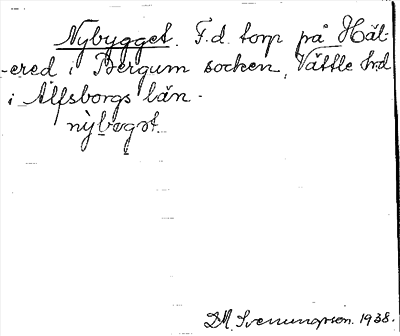 Nybygget. F.d. torp på Häl-
ered i Bergum socken, Vättle hrd
i Älfsborgs län.
nỳbegət
D.M. Svenungsson. 1938.